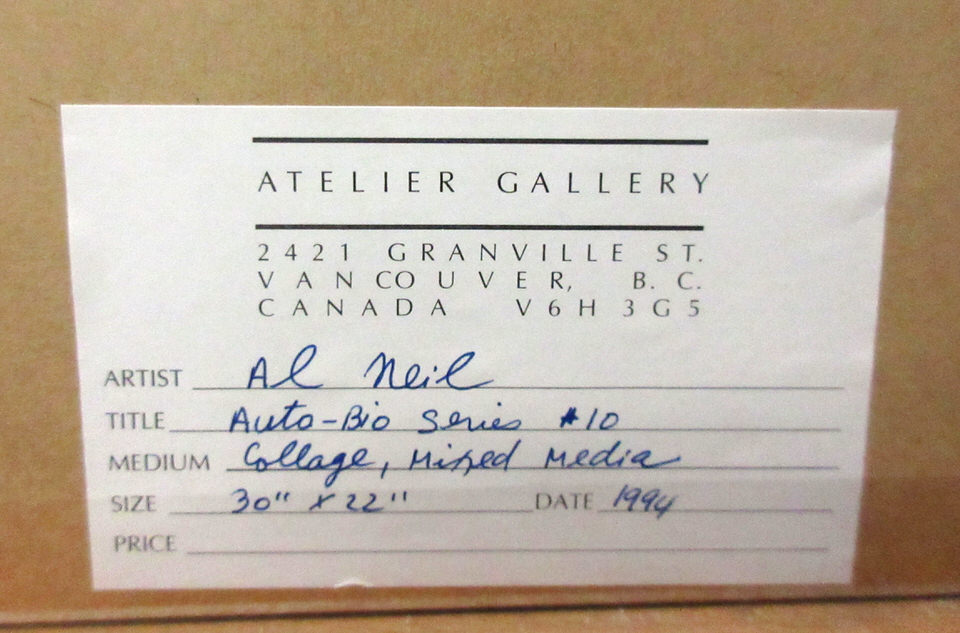 ATELIER GALLERY
2421 GRANVILLE ST.
VANCOUVER, B. C.
CANADA V6H 3G5
ARTIST Al Neil
TITLE Auto-Bio Series #10
MEDIUM Collage, Mixed Media
SIZE 30" x 22" DATE 1994
PRICE